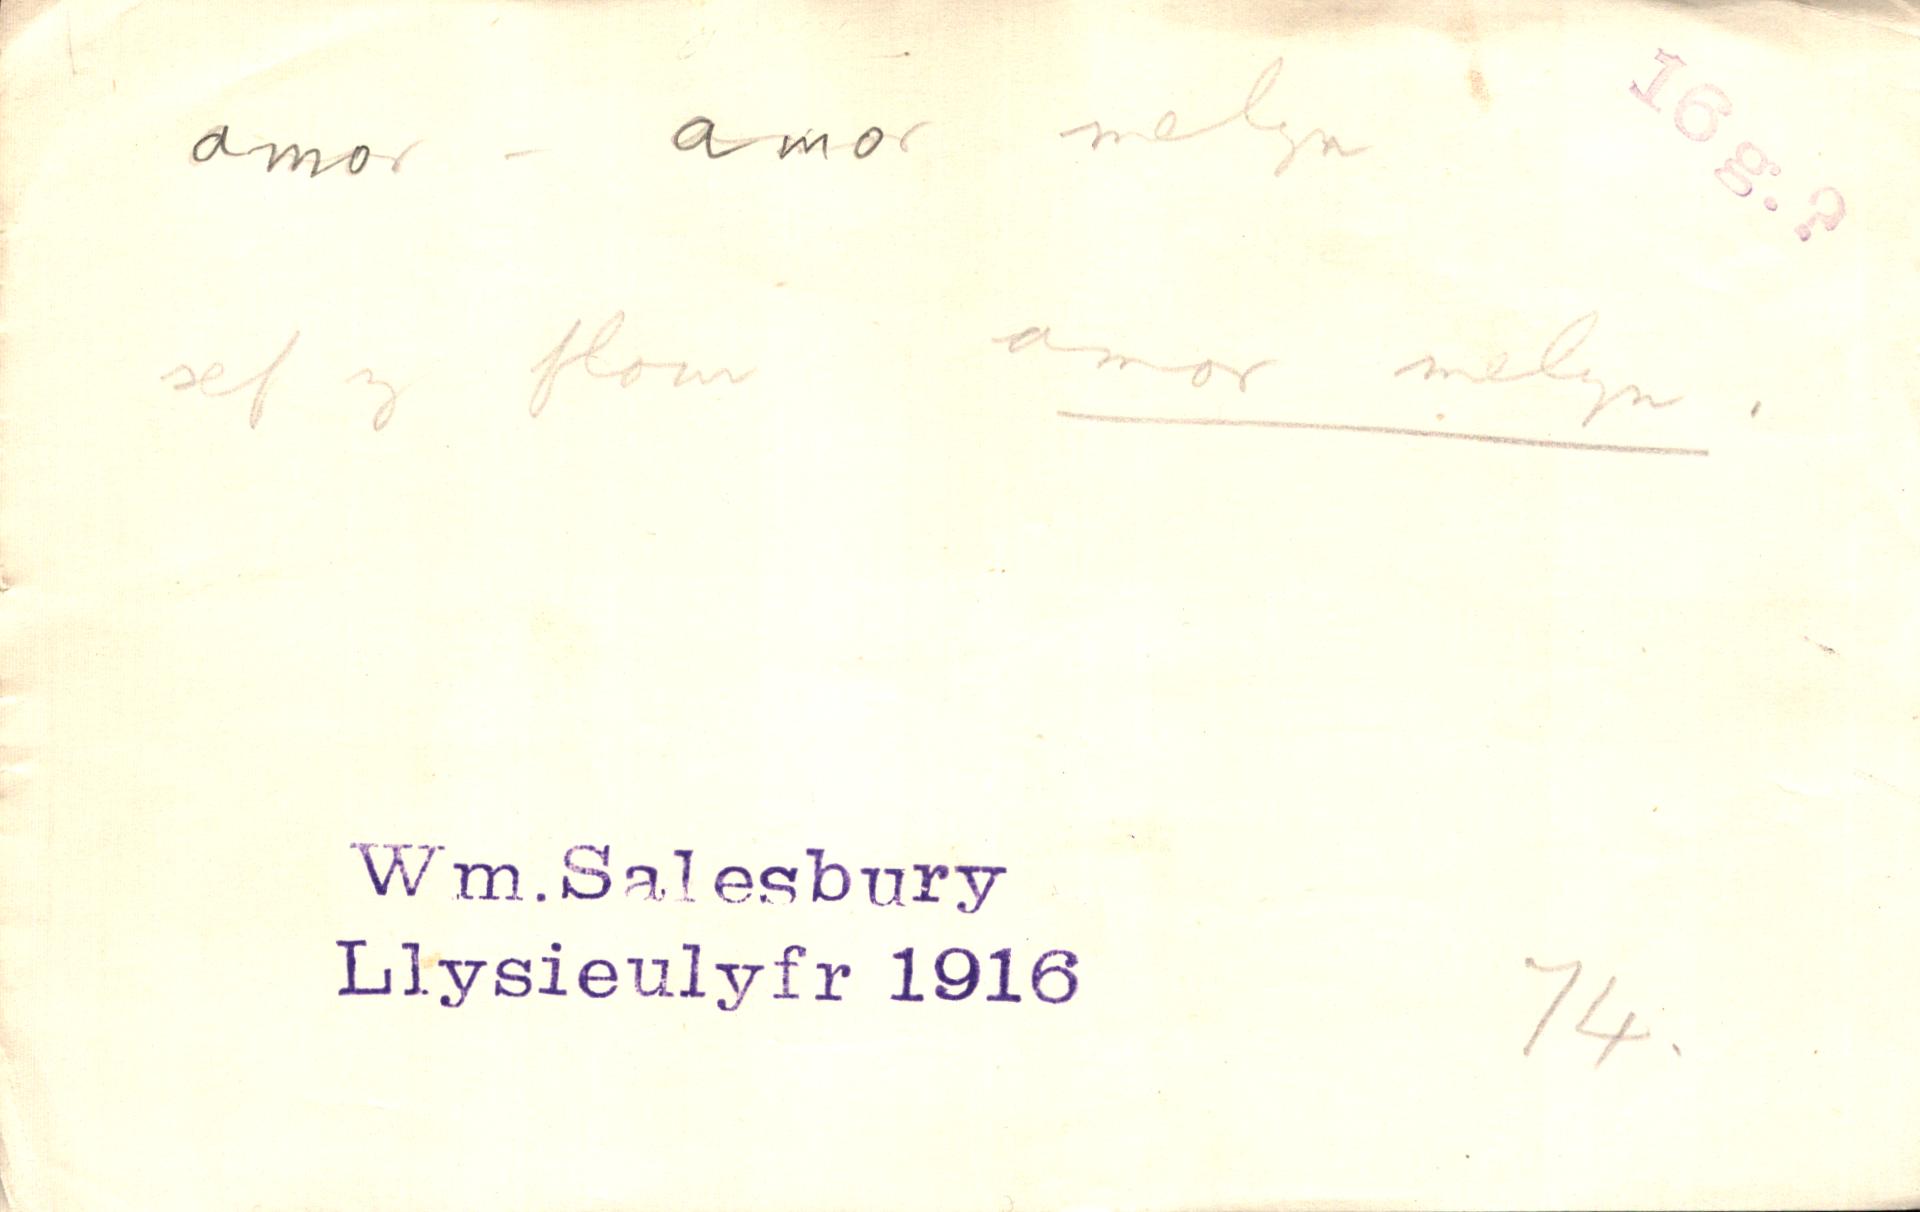 amor - amor melyn
16 g.?
sef y flour amor melyn.
Wm. Salesbury
Llysieulyfr 1916
74.